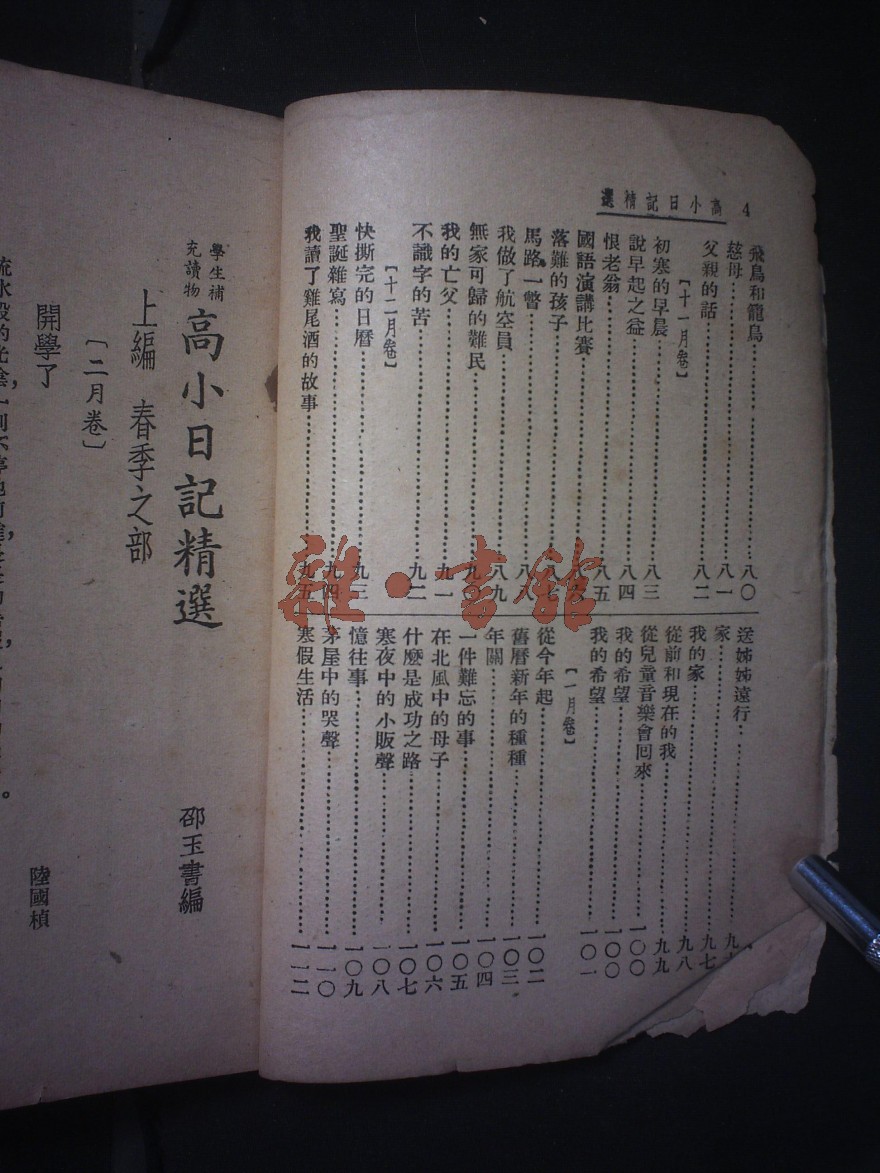 4 高小日記精選
飛鳥和籠鳥……八〇
慈母……八一
父親的話……八二
〔十一月卷〕
初寒的早晨……八三
說早起之益……八四
恨老翁……八五
國語演講比賽……八六
落難的孩子……八七
馬路一瞥……八八
我做了航空員……八九
無家可歸的難民……九〇
我的亡父……九一
不識字的苦……九二
〔十二月卷〕
快撕完的日曆……九三
聖誕雜寫……九四
我讀了雞尾酒的故事……九五
送姊姊遠行……九
家……九七
我的家……九八
從前和現在的我……九九
從兒童音樂會回來……一〇〇
我的希望……一〇〇
我的希望……一〇一
〔一月卷〕
從今年起……一〇二
舊曆新年的種種……一〇三
年關……一〇四
一件難忘的事……一〇五
在北風中的母子……一〇六
什麼是成功之路……一〇七
寒夜中的小販聲……一〇八
憶往事……一〇九
茅屋中的哭聲……一一〇
寒假生活……一一二
學生補
充讀物
高小日記精選
邵玉書編
上編 春季之部
〔二月卷〕
開學了
陸國楨
雜·書館